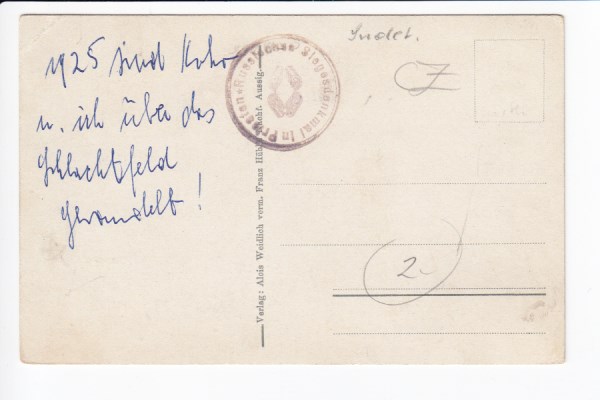 1925 sind Koko
u. ich über das
Schlachtfeld
gewandelt!
Russisches Siegesdenkmal in Priesten
Verlag: Alois Weidlich verm. Franz Hübl Nachf. Aussig.
Indet.
2.-